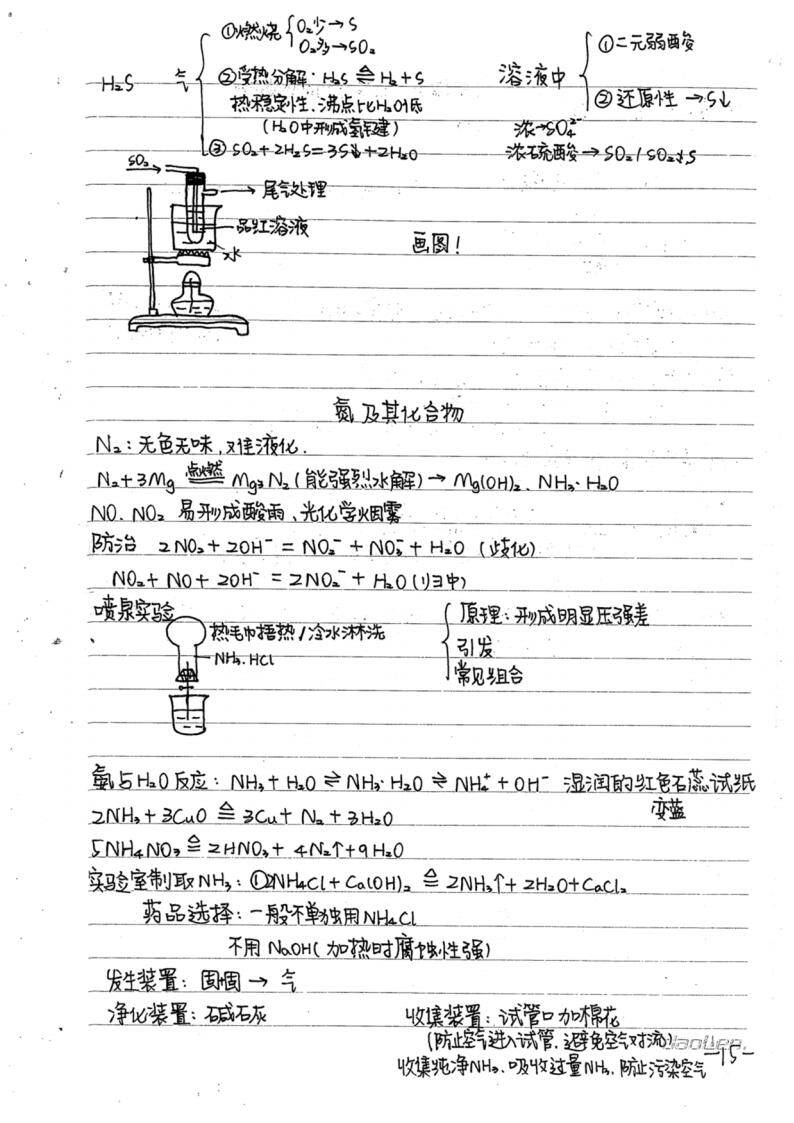 H₂S 气 ①燃烧 O₂少→S
O₂多→SO₂
②受热分解: H₂S ≜ H₂+S
热稳定性、沸点比H₂O低
(H₂O中形成氢键)
③ SO₂+2H₂S=3S↓+2H₂O
溶液中 ①二元弱酸
②还原性→S↓
浓→SO₄²⁻
浓硫酸→SO₂/SO₂或S
SO₂
尾气处理
品红溶液
水
画图!
氮及其化合物
N₂:无色无味,难液化.
N₂+3Mg 点燃 Mg₃N₂(能强烈水解)→Mg(OH)₂、NH₃·H₂O
NO、NO₂ 易形成酸雨、光化学烟雾
防治 2NO₂+2OH⁻=NO₂⁻+NO₃⁻+H₂O (歧化)
NO₂+NO+2OH⁻=2NO₂⁻+H₂O(归中)
喷泉实验
热毛巾捂热/冷水淋洗
NH₃、HCl
原理:形成明显压强差
引发
常见组合
氨与H₂O反应: NH₃+H₂O⇌NH₃·H₂O⇌NH₄⁺+OH⁻ 湿润的红色石蕊试纸
变蓝
2NH₃+3CuO ≜ 3Cu+N₂+3H₂O
5NH₄NO₃ ≜ 2HNO₃+4N₂↑+9H₂O
实验室制取NH₃:①2NH₄Cl+Ca(OH)₂ ≜ 2NH₃↑+2H₂O+CaCl₂
药品选择:一般不单独用NH₄Cl
不用NaOH(加热时腐蚀性强)
发生装置:固固→气
净化装置:碱石灰
收集装置:试管口加棉花
(防止空气进入试管、避免空气对流)
收集纯净NH₃、吸收过量NH₃、防止污染空气
-15-